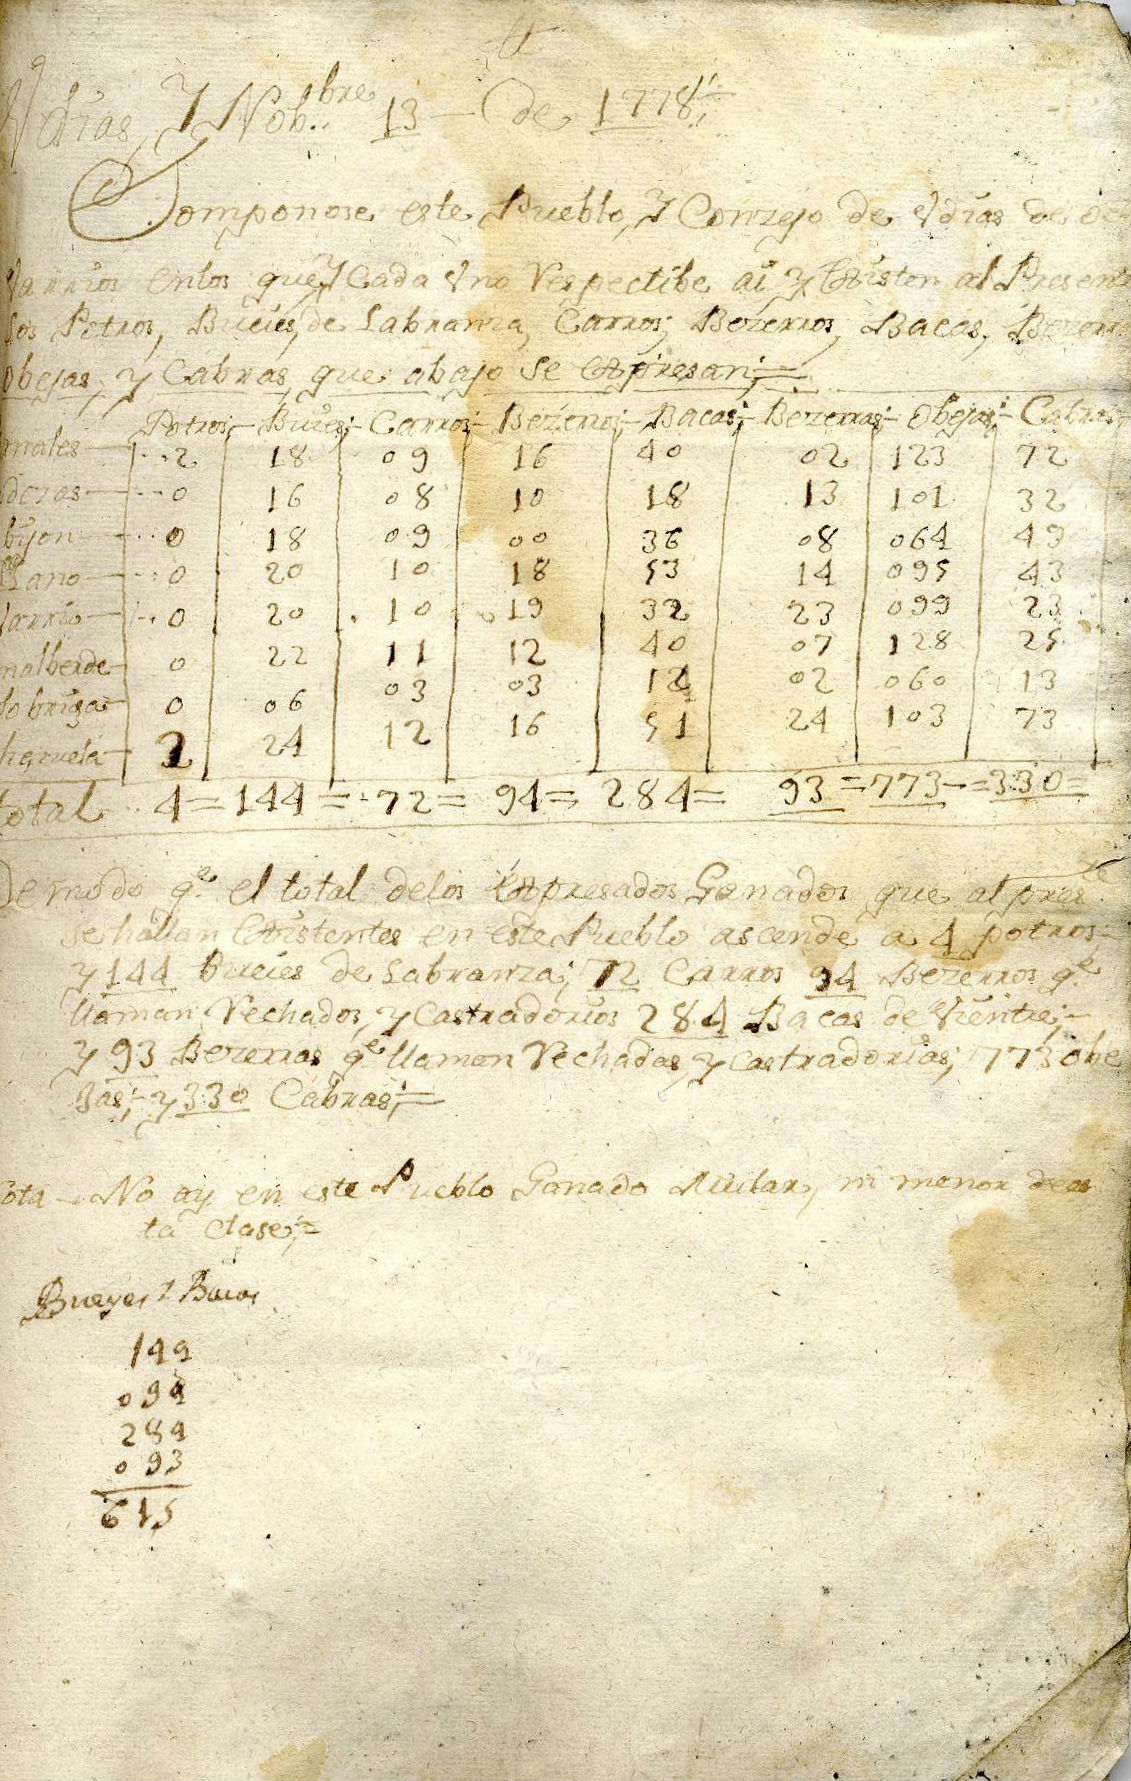 Vdias, Y Nobbre 13 - de 1778
Componese este Pueblo, Y Conzejo de Vdias de
Varrios enlos que, Y Cada Vno Respectibe ai y Existen al Presen
los Potros, Bueies, de Labranza, Carros, Bezerros, Bacas, Bezerr
obejas, y Cabras, que abajo se Expresan;=
Potros;- Buies;- Carros;- Bezerros;- Bacas;- Bezerras;- obejas;- Cabras
males - 2 18 09 16 40 02 123 72
deras - 0 16 08 10 18 13 101 32
byon - 0 18 09 00 36 08 064 49
llano - 0 20 10 18 53 14 095 43
Varrio - 0 20 10 19 32 23 099 23
nalberde - 0 22 11 12 40 07 128 25
lobriga - 0 06 03 03 12 02 060 13
hanuela - 2 24 12 16 51 24 103 73
total 4 = 144 = 72 = 94 = 284 = 93 = 773 - = 330 =
De modo qe el total delos Expresados Ganados que al preste
se hallan Existentes en este Pueblo asciende a 4 potros;=
y 144 bueies de Labranza; 72 Carros 94 Bezerros qe
llaman Rechados, y Castradorios 284 Bacas de Vientre;-
y 93 Bezerras qe llaman Rechadas, y castradorias; 773 obe
jas;- y 330 Cabras;=
ota - No ay en este Pueblo Ganado Mular, ni menor de es
ta clase;=
Bueyes y Bacas
144
094
284
093
615